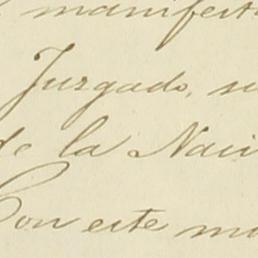 manifest
Juzgado, su
de la Naci
Con este mo